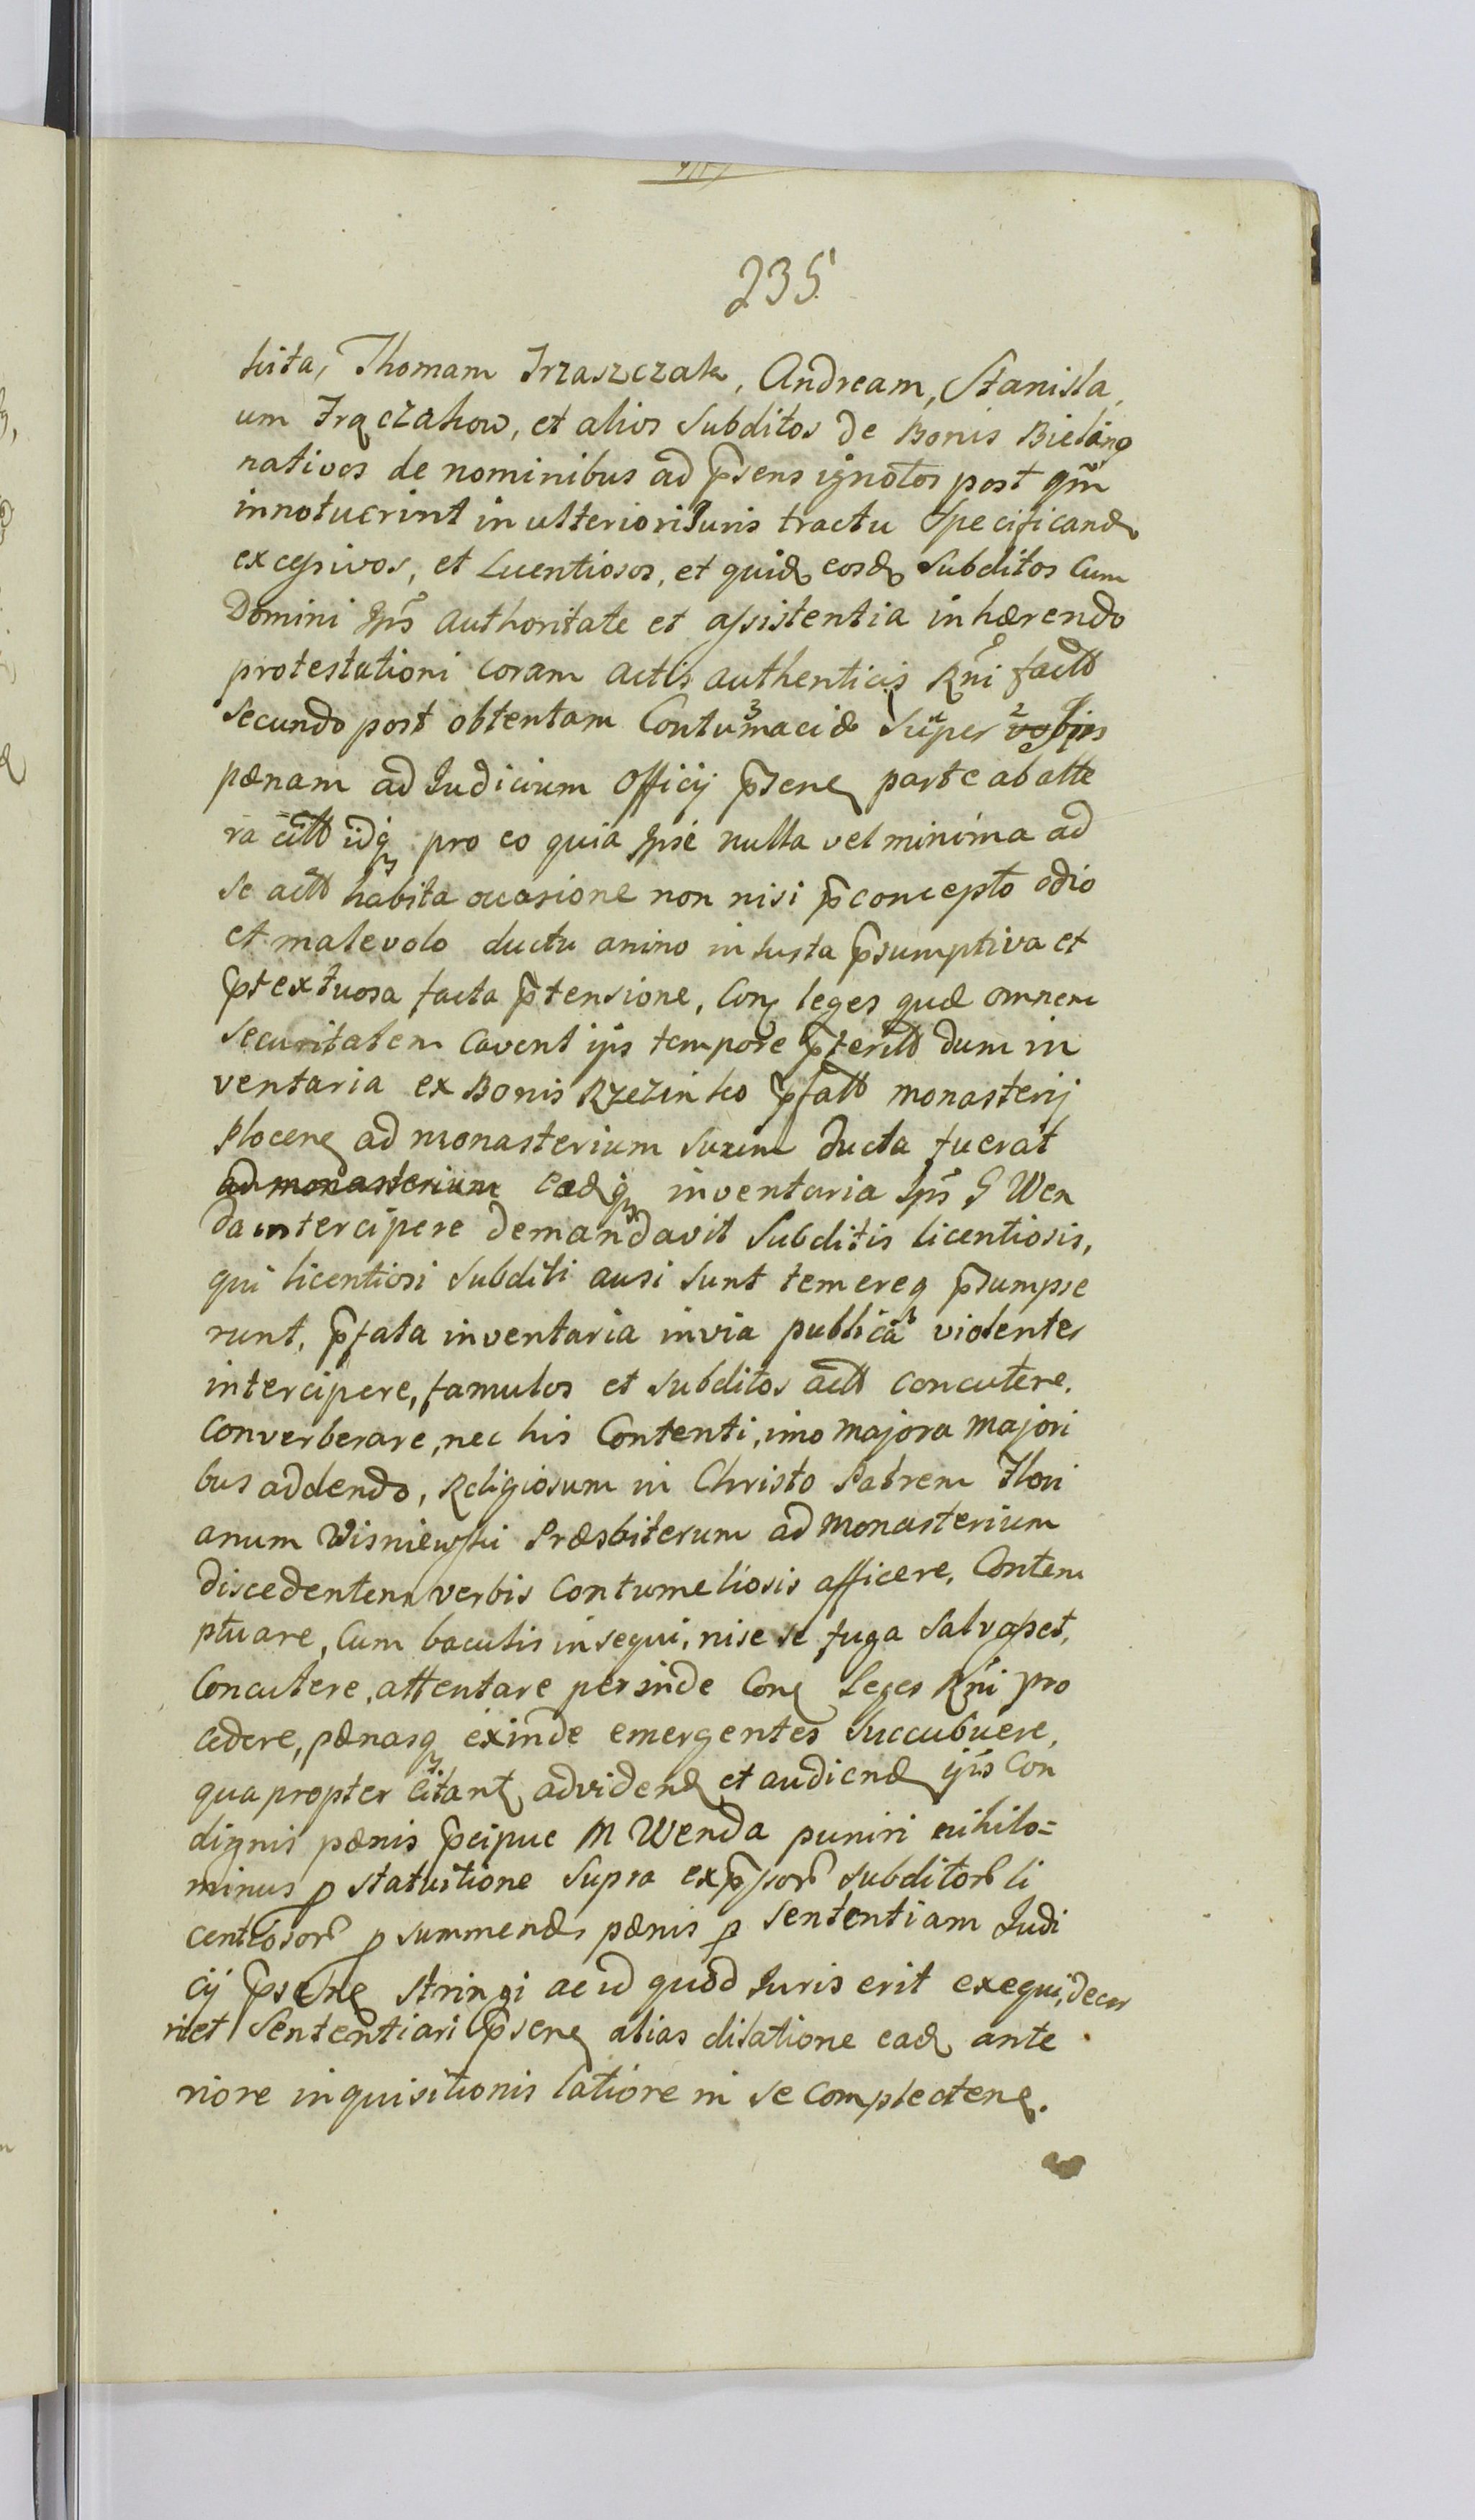 235
kita, Thomam Trzaszczak, Andream, Stanisla,
um Trączakow, et alios Subditos de Bonis Bielino
nativos de nominibus ad p̃sens ignotos post qm̃
innotuerint in ulteriori Iuris tractu Specificand
excessivos, et Lucentiosos, et quid eosd Subditos Cum
Domini Ips̃ authoritate et assistentia inhærendo
protestationi coram actis authenticis Rñi factt
Secundo post obtentam Contumaciæ Super
pænam ad Iudicium Officij p̃sen parte ab alte
ra citt idq pro eo quia Ipse nulla vel minima ad
se actt habita occasione non nisi p̃concepto odio
et malevolo ductu animo iniusta p̃sumptiva et
p̃textuosa facta p̃tensione, Con leges quæ omnem
Securitatem Cavent ijs tempore p̃teritt dum in
ventaria ex Bonis Rzezinko p̃fatt monasterij
Plocen ad monasterium Suum ducta fuerat
ad monasterium eadq inventaria Ips̃ G Wen
da intercipere demandavit Subditis licentiosis,
qui licentiosi Subditi ausi sunt temereq p̃sumpse
runt, p̃fata inventaria in via publica violenter
intercipere, famulos et subditos actt concutere,
converberare, nec his Contenti, imo majora majori
bus addendo, Religiosum in Christo Patrem Flori
anum Wisniewski Præsbiterum ad monasterium
discedentem verbis Contumeliosis afficere, Contem
ptuare, Cum baculis insequi, nise se fuga Salvasset,
Concutere, attentare perinde Con Leges Rñi pro
cedere, pænasq exinde emergentes Succubuere,
qua propter citant ad viden et audiend ijs Con
dignis pænis p̃cipue M Wenda puniri nihilo=
minus p statuitione Supra exp̃ssor subditor li
centiosor p summend pænis p Sententiam Iudi
cij p̃sen stringi ac id quod Iuris erit exequi, decer
ni et Sententiari p̃sen alias dilatione ead ante
riore inquisitionis latiore in se complecten.